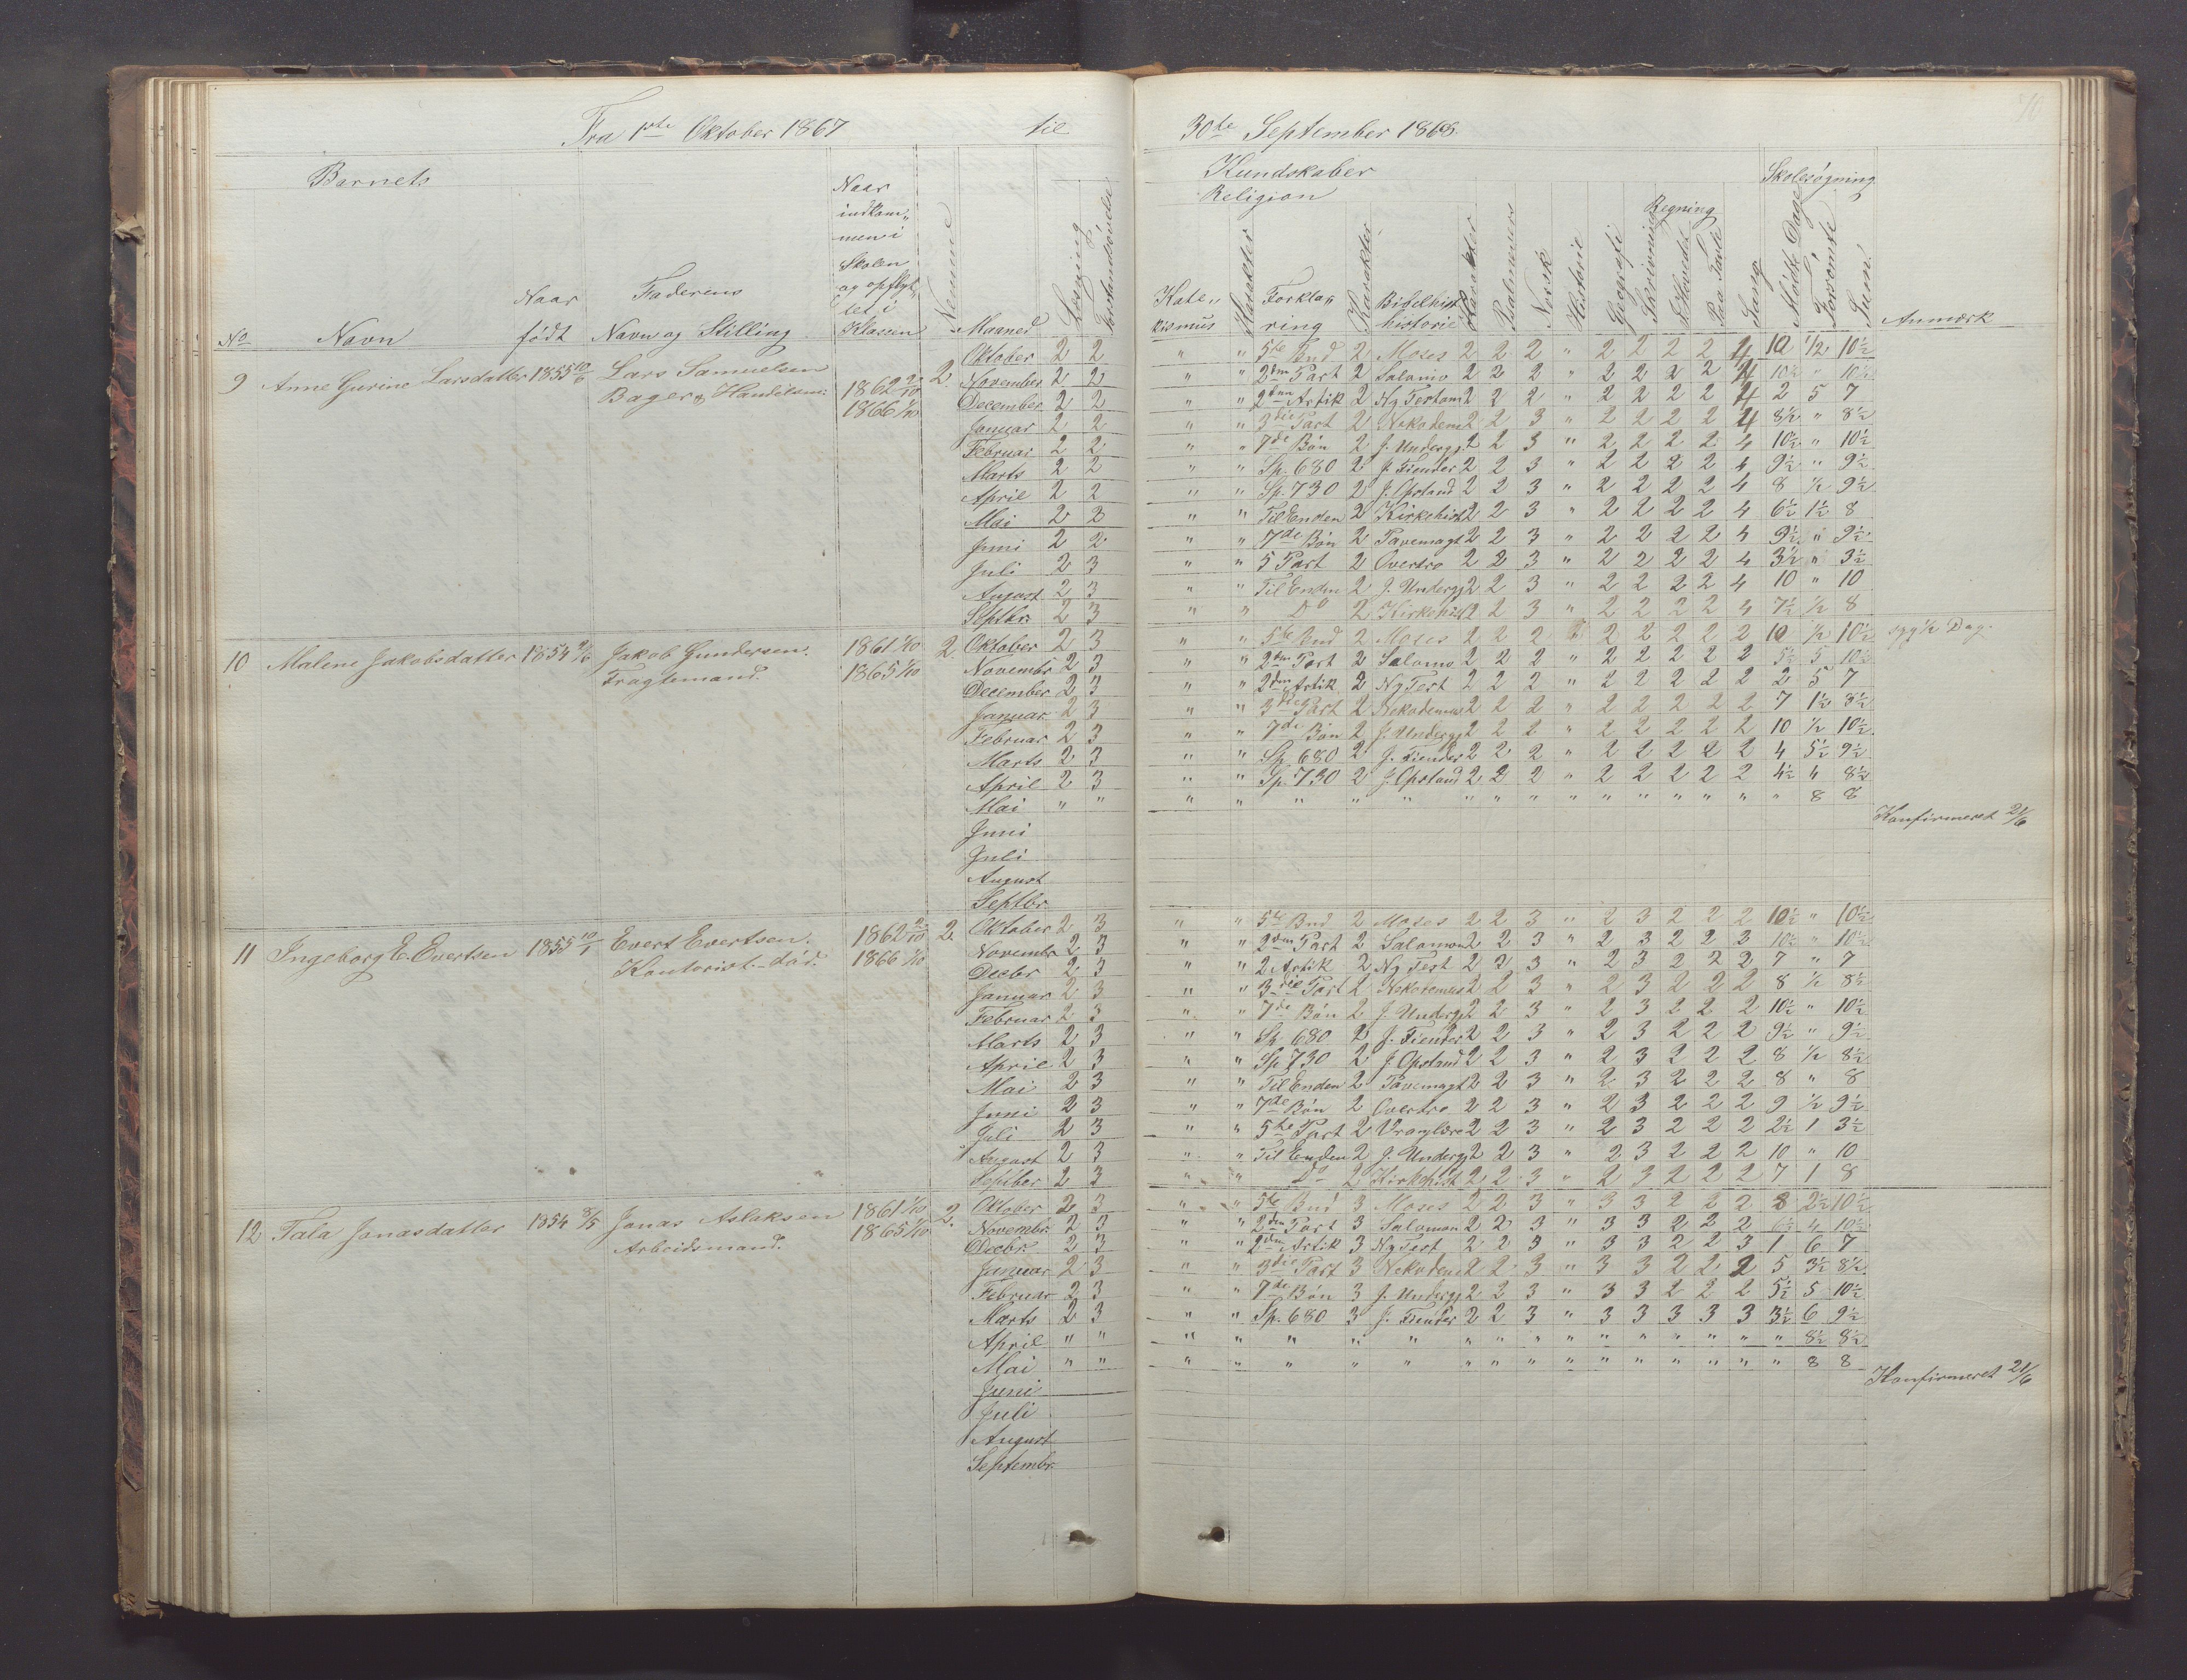 Fra 1ste Oktober 1867 til 30te September 1868.
Barnets Kundskaber Skolesøgning
Religion Regning
No Navn Naar født Faderens Navn og Stilling Naar indkommen i Skolen og opflyttet i Klassen Nemme Maaned Læsning Forstandsøvelse Katekismus Karakter Forklaring Karakter Bibelhist historie Karakter Psalmevers Norsk Historie Geografi Skrivning I Hovedet Paa Tavle Sang Mødte Dage Forsømte Sum Anmærk
9 Anne Gurine Larsdatter 1855 10/6 Lars Samuelsen
Bager & Handelsm.
1862 2/10
1866 1/10
2.
Oktober 2 2 " " 5te Bud 2 Moses 2 2 2 " 2 2 2 2 4 10 1/2 10½
November 2 2 " " 2den Part 2 Salomo 2 2 2 " 2 2 2 2 4 10½ " 10½
December 2 2 " " 2den Artik 2 Ny Testam 2 2 2 " 2 2 2 2 4 2 5 7
Januar 2 2 " " 3die Part 2 Nekodem 2 2 3 " 2 2 2 2 4 8½ " 8½
Februar 2 2 " " 7de Bøn 2 J. Undergj. 2 2 3 " 2 2 2 2 4 10½ " 10½
Marts 2 2 " " Sp. 680 2 J. Fiender 2 2 3 " 2 2 2 2 4 9½ " 9½
April 2 2 " " Sp. 730 2 J. Opstand 2 2 3 " 2 2 2 2 4 8 ½ 9½
Mai 2 2 " " Til Enden 2 Kirkehist 2 2 3 " 2 2 2 2 4 6½ 1½ 8
Juni 2 2 " " 7de Bøn 2 Pavemagt 2 2 3 " 2 2 2 2 4 9½ " 9½
Juli 2 3 " " 5 Part 2 Overtro 2 2 3 " 2 2 2 2 4 3½ " 3½
August 2 3 " " Til Enden 2 J. Undergj 2 2 3 " 2 2 2 2 4 10 " 10
Septbr. 2 3 " " Do 2 Kirkehist 2 2 3 " 2 2 2 2 4 7½ ½ 8
10 Malene Jakobsdatter 1854 Jakob Gundersen.
Fragtemand.
1861 1/10
1865 1/10
2.
Oktober 2 3 " " 5te Bud 2 Moses 2 2 2 2 2 2 2 2 10 ½ 10½ syg ½ Dag.
Novembr 2 3 " " 2den Part 2 Salomo 2 2 2 " 2 2 2 2 2 5½ 5 10½
December 2 3 " " 2den Artik 2 Ny Test 2 2 2 " 2 2 2 2 2 2 5 7
Januar 2 3 " " 3die Part 2 Nekodemus 2 2 2 " 2 2 2 2 2 7 1½ 8½
Februar 2 3 " " 7de Bøn 2 J. Undergj 2 2 2 " 2 2 2 2 2 10 ½ 10½
Marts 2 3 " " Sp. 680 2 J. Fiender 2 2 2 " 2 2 2 2 2 4 5½ 9½
April 2 3 " " Sp. 730 2 J. Opstand 2 2 2 " 2 2 2 2 2 4½ 4 8½
Mai " " " " " " " " " " " " " " " " " 8 8
Juni Konfirmeret 21/6
Juli
August
Septbr.
11 Ingeborg E. Evertsen 1855 10/1 Evert Evertsen.
Kontorist. - død.
1862 2/10
1866 1/10
2.
Oktober 2 3 " " 5te Bud 2 Moses 2 2 3 " 2 3 2 2 2 10½ " 10½
Novembr 2 3 " " 2den Part 2 Salomon 2 2 3 " 2 3 2 2 3 10½ " 10½
Decbr 2 3 " " 2 Artik 2 Ny Test 2 2 3 " 2 3 2 2 2 7 " 7
Januar 2 3 " " 3die Part 2 Nekodemus 2 2 3 " 2 3 2 2 2 8 ½ 8½
Februar 2 3 " " 7de Bøn 2 J. Undergj 2 2 3 " 2 3 2 2 2 10½ " 10½
Marts 2 3 " " Sp. 680 2 J. Fiender 2 2 3 " 2 3 2 2 2 9½ " 9½
April 2 3 " " Sp. 730 2 J. Opstand 2 2 3 " 2 3 2 2 2 8 ½ 8½
Mai 2 3 " " Til Enden 2 Pavemagt 2 2 3 " 2 3 2 2 2 8 " 8
Juni 2 3 " " 7de Bøn 2 Overtro 2 2 3 " 2 3 2 2 2 9 ½ 9½
Juli 2 3 " " 5te Part 2 Vranglære 2 2 3 " 2 3 2 2 2 2½ 1 3½
August 2 3 " " Til Enden 2 J. Undergj 2 2 3 " 2 3 2 2 2 10 " 10
Septbr 2 3 " " Do 2 Kirkehist 2 2 3 " 2 3 2 2 2 7 1 8
12 Tala Jonasdatter 1854 8/5 Jonas Aslaksen
Arbeidsmand.
1861 1/10
1865 1/10
2.
Oktober 2 3 " " 5te Bud 3 Moses 2 2 3 " 3 3 2 2 2 8 2½ 10½
Novembr. 2 3 " " 2den Part 3 Salomon 2 2 3 " 3 3 2 2 2 6½ 4 10½
Decbr. 2 3 " " 2den Artik 3 Ny Test 2 2 3 " 3 3 2 2 3 1 6 7
Januar 2 3 " " 3die Part 3 Nekodem 2 2 3 " 3 3 2 2 2 5 3½ 8½
Februar 2 3 " " 7de Bøn 3 J. Undergj 2 2 3 " 3 3 2 2 2 5½ 5 10½
Marts 2 3 " " Sp. 680 3 J. Fiender 2 2 3 " 3 3 3 3 3 3½ 6 9½
April " " " " " " " " " " " " " " " " " 8½ 8½
Mai " " " " " " " " " " " " " " " " " 8 8
Juni Konfirmeret 21/6
Juli
August
Septembr.